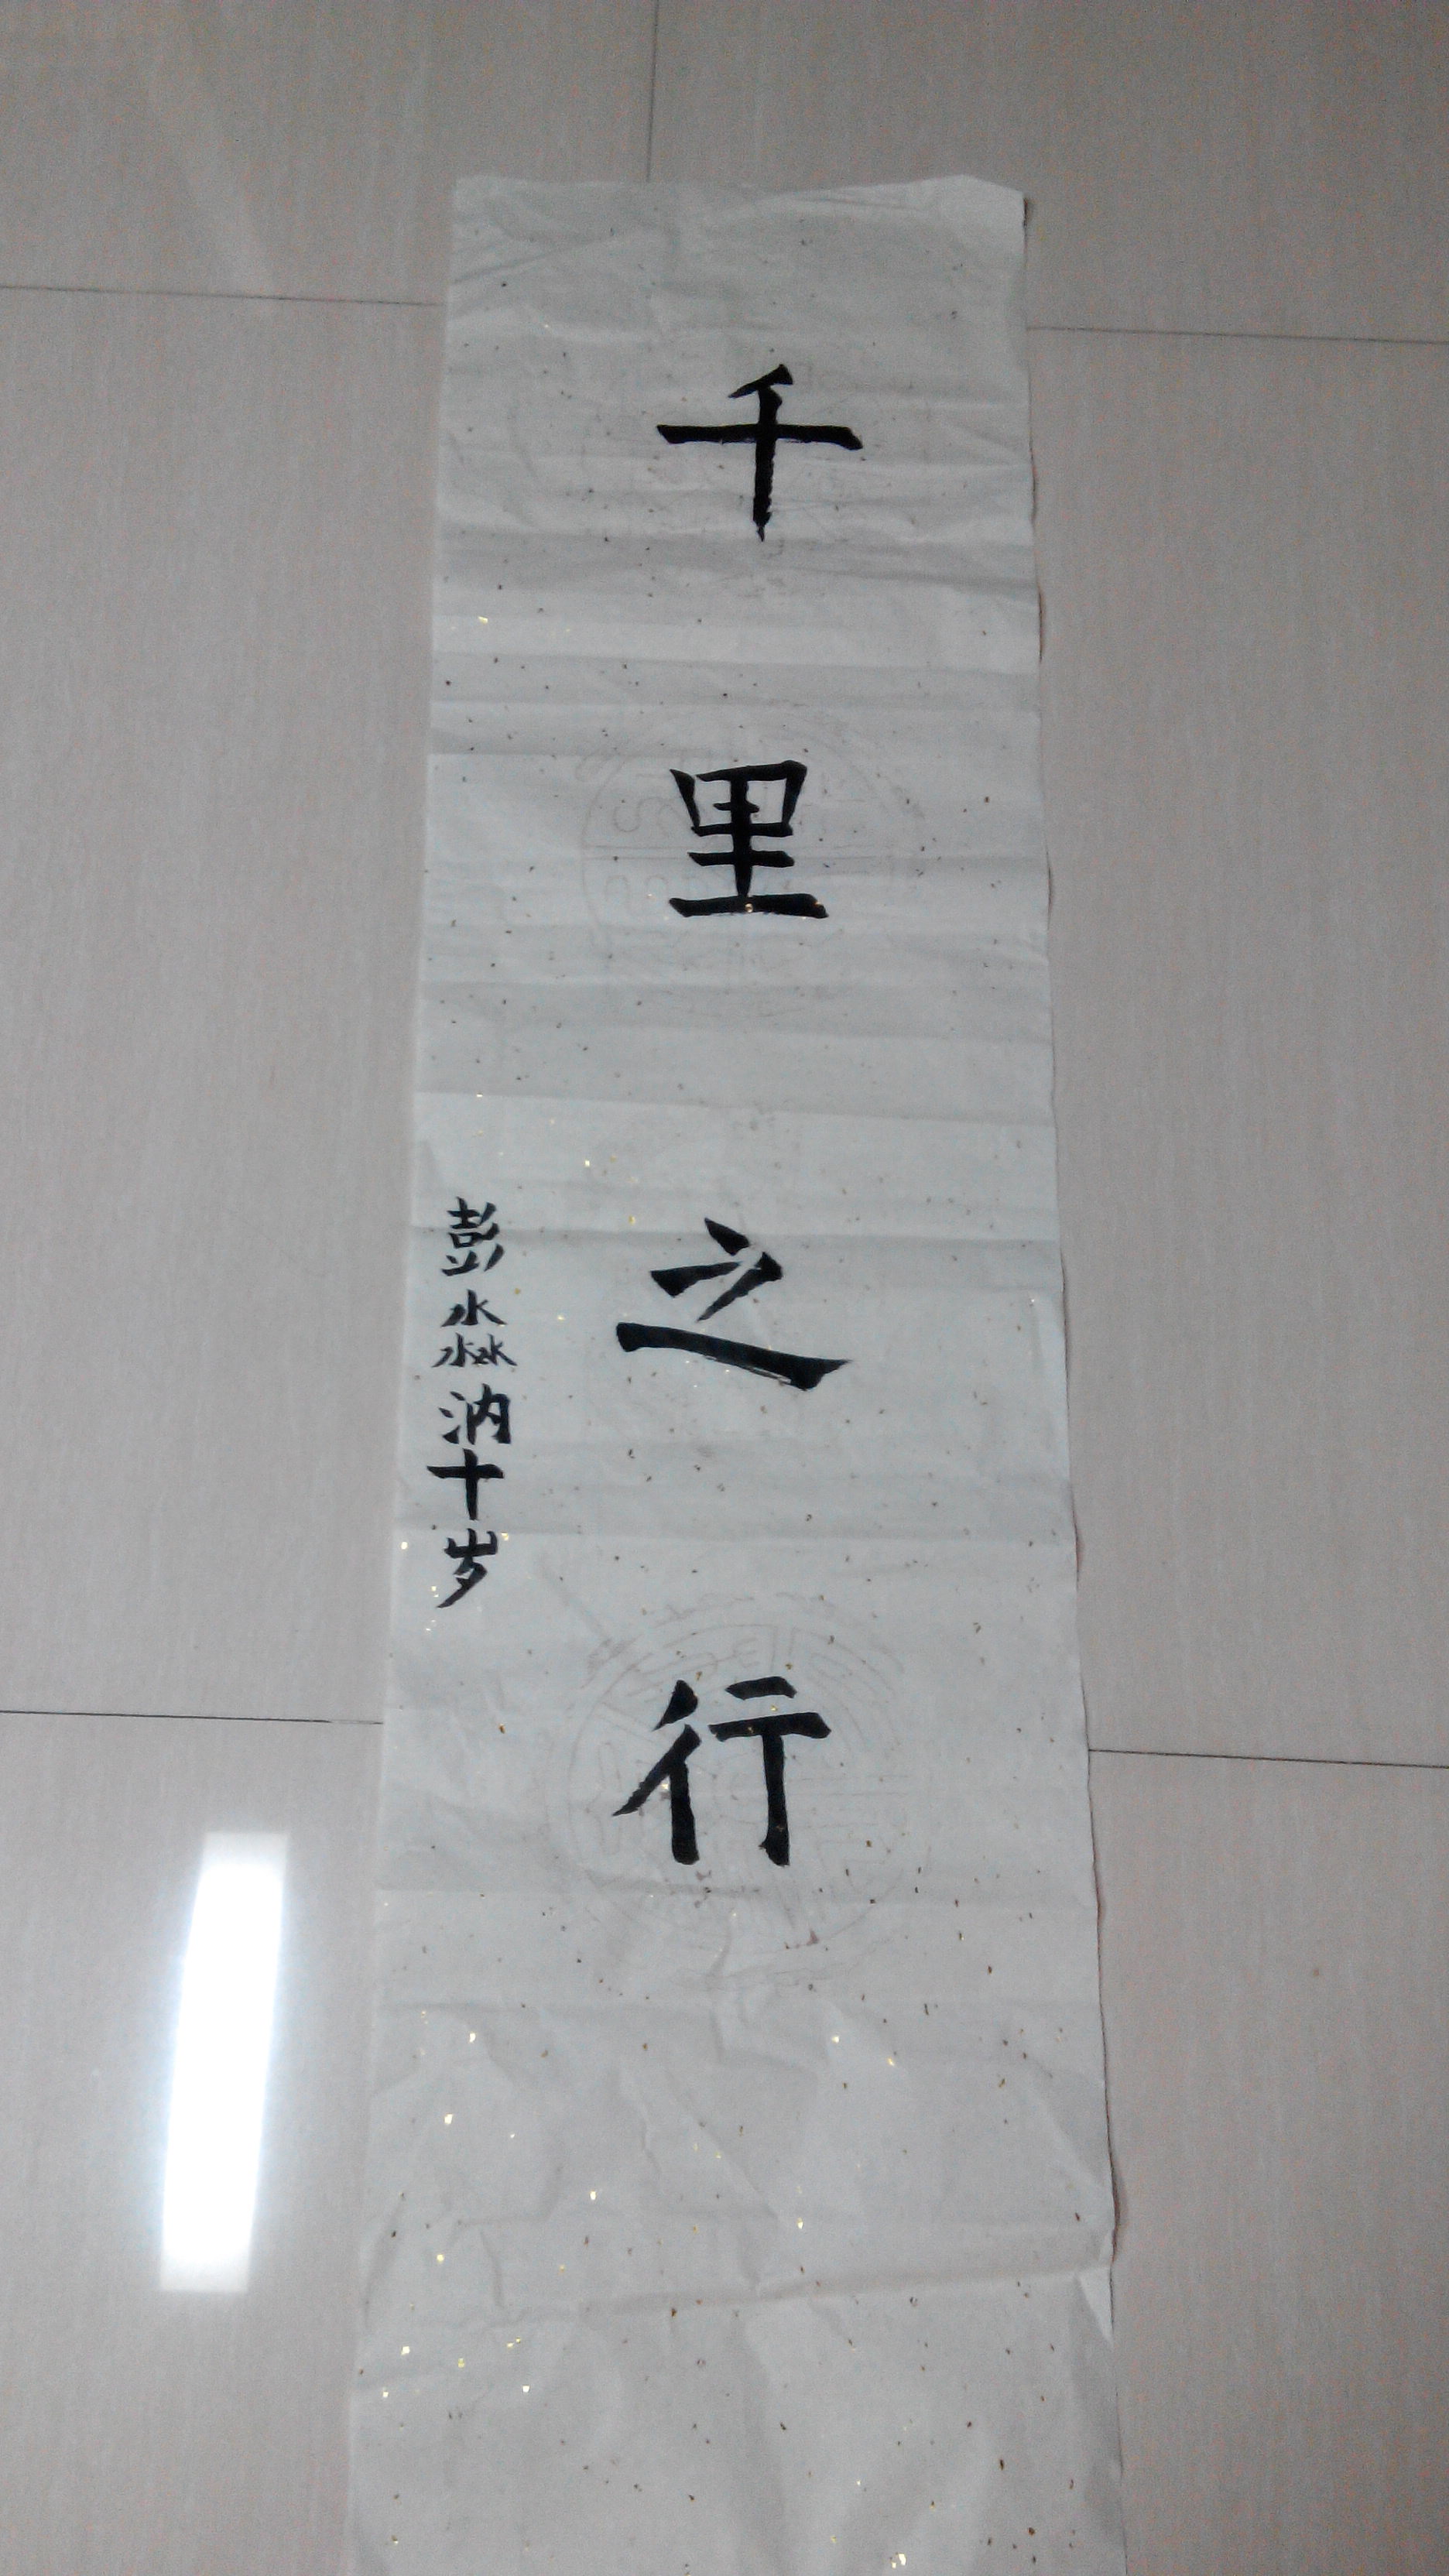 千里之行
彭淼汭十岁